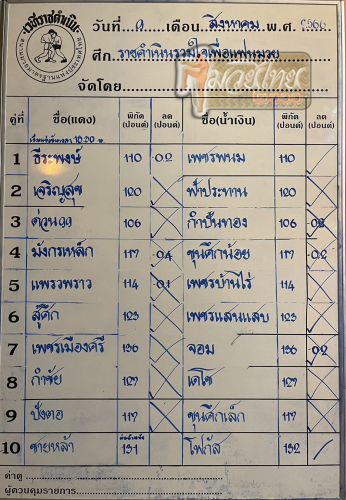 เวทีราชดำเนิน
วันที่ ๑ เดือน สิงหาคม พ.ศ.
ศึก ราชดำเนินรวมใจเพื่อแฟนมวย
มวยไทย
จัดโดย
คู่ที่ ชื่อ(แดง) พิกัด (ปอนด์) ลด (ปอนด์) ชื่อ(น้ำเงิน) พิกัด (ปอนด์) ลด (ปอนด์)
1 ธีระพงษ์ 110 0.2 เพชรพนม 110
2 เจริญสุข 120 ฟ้าประทาน 120
3 ด่วน 106 กำปั้นทอง 106
4 มังกรเหล็ก 117 0.4 ขุนศึกน้อย 117 0.2
5 แพรวพราว 114 0.1 เพชรบ้านไร่ 114
6 สู้ศึก 123 เพชรแสนแสบ 123
7 เพชรเมืองศรี 136 จอม 136 0.2
8 กำชัย 127 เคโซ 127
9 ปังตอ 117 ขุนศึกเล็ก 117
10 ชายหล้า 131 โฟกัส 132
ค่าดู
ผู้ควบคุมรายการ